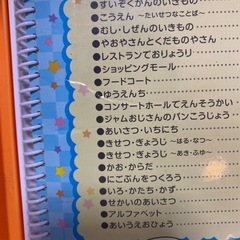 すいぞくかんのいきもの
● こうえん ～たいせつなことば～
● むし・しぜんのいきもの
● やおやさんとくだものやさん
● レストランでおしょくじ
● ショッピングモール
● フードコート
● ゆうえんち
● コンサートホールでえんそうかい
● ジャムおじさんのパンこうじょう
● あいさつ・いちにち
● きせつ・ぎょうじ ～はる・なつ～
● きせつ・ぎょうじ ～あき・ふゆ～
● かお・からだ
● にこぶんをつくろう
● いろ・かたち・かず
● せかいのあいさつ
● アルファベット
● あいうえおひょう